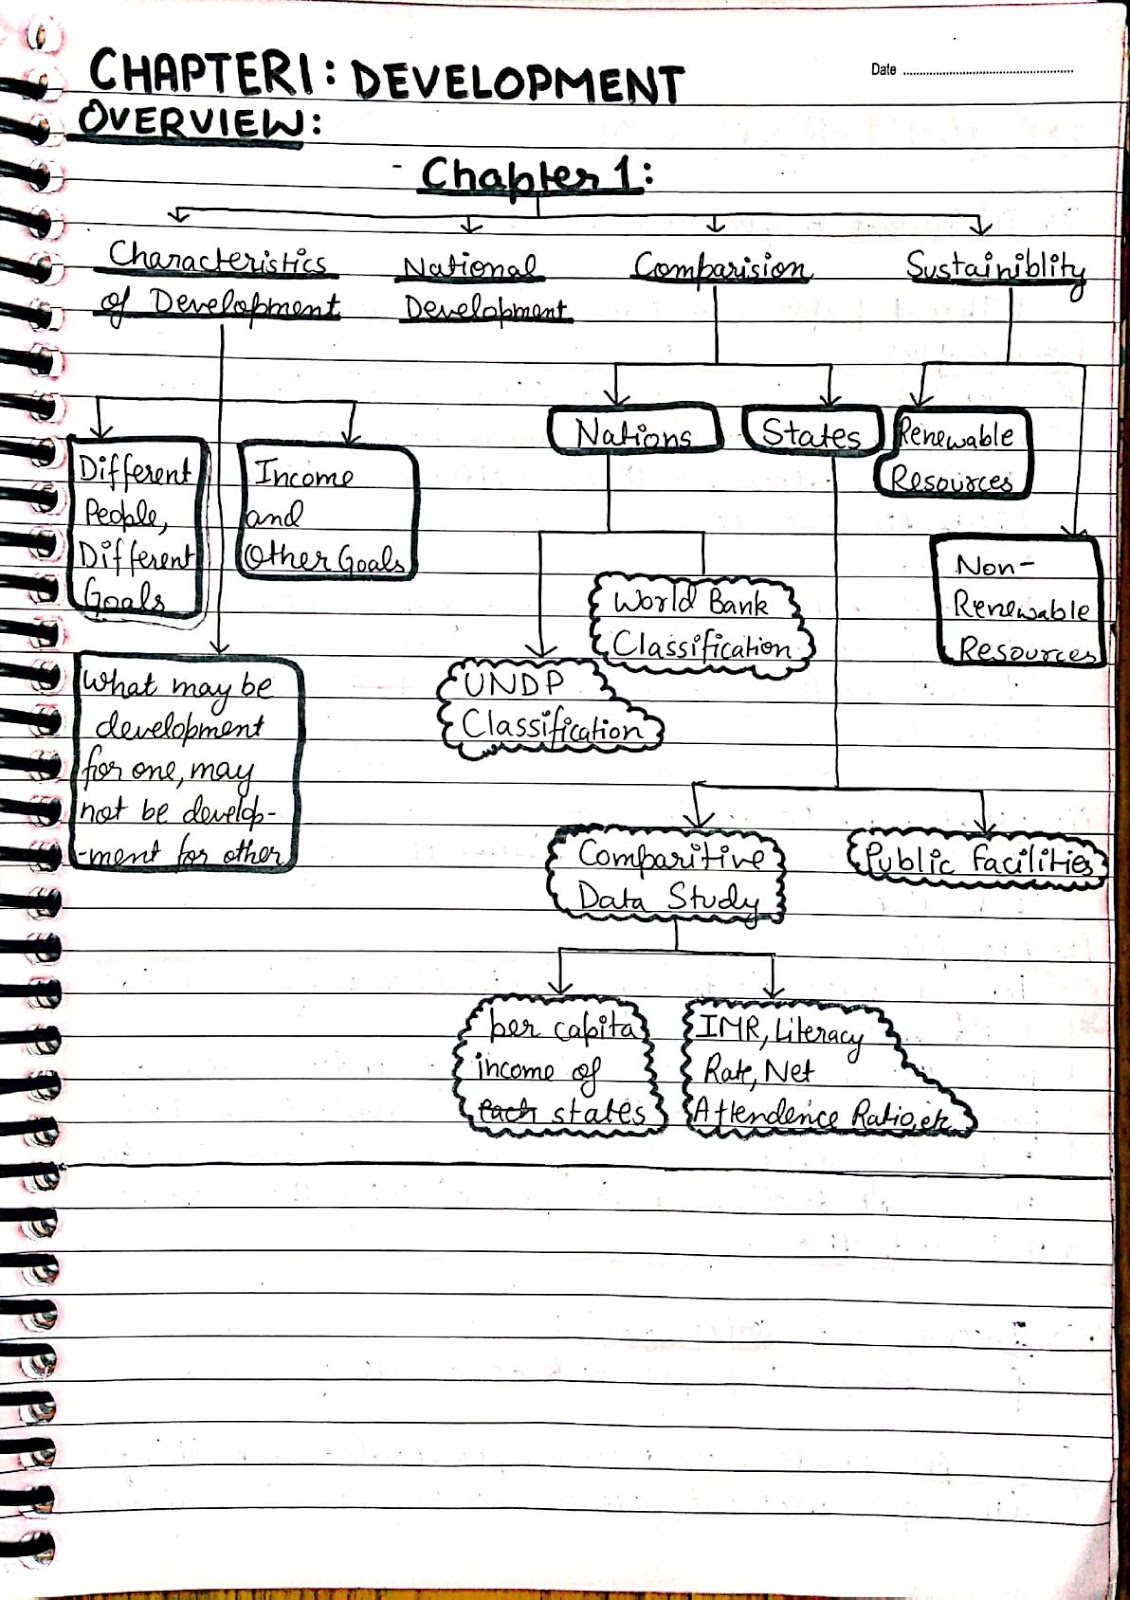 Date
CHAPTER1: DEVELOPMENT
OVERVIEW:
- Chapter 1:
Characteristics
of Development
National
Development
Comparision
Sustainiblity
Different
People,
Different
Goals
Income
and
Other Goals
What may be
development
for one, may
not be develop-
-ment for other
Nations
States
Renewable
Resources
Non-
Renewable
Resources
World Bank
Classification
UNDP
Classification
Comparitive
Data Study
Public facilities
per capita
income of
each states
IMR, Literacy
Rate, Net
Attendence Ratio, etc